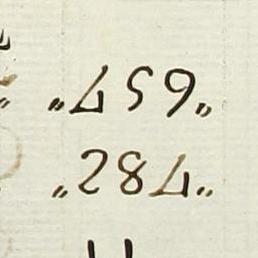 „459„
„284„